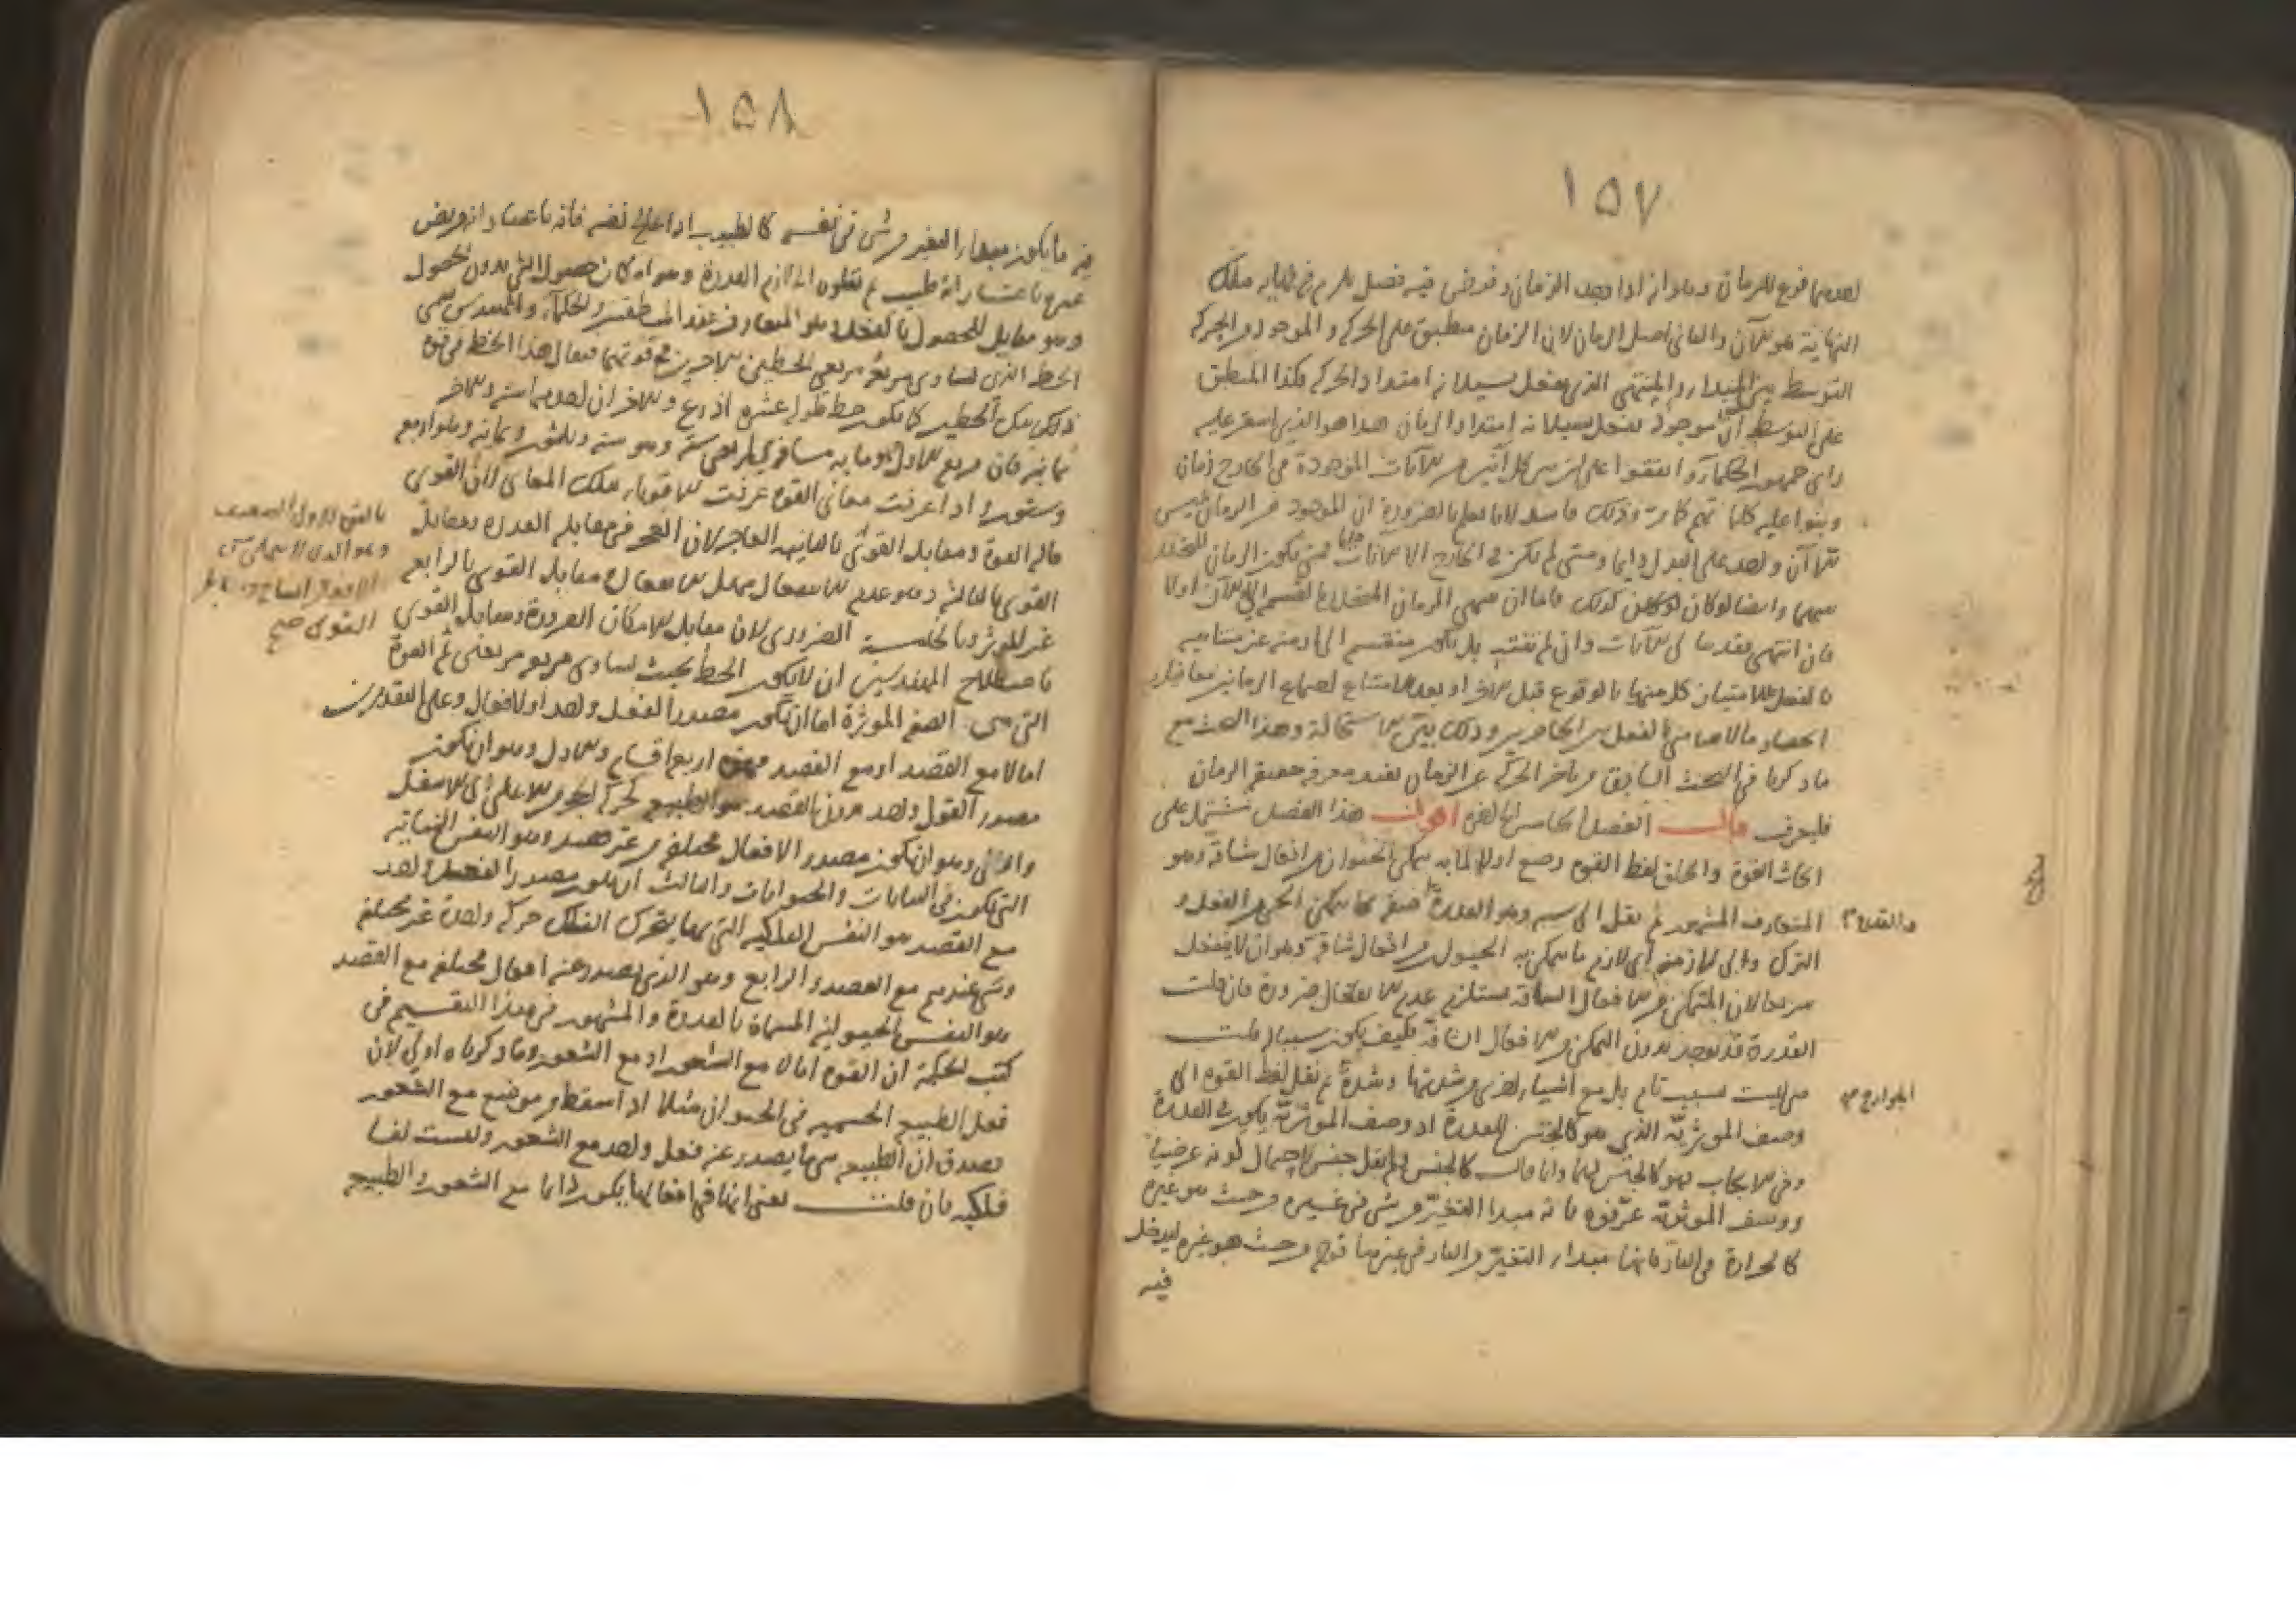 ١٥٧
لعدمها فرع للزمان وهو انه اذا وجد الزمان وفرض فيه فصل يلزم في طباعه تلك
النهاية هو الآن والثاني اصل الزمان لان الزمان منطبق على الحركة والموجود من الحركة
التوسط بين المبدأ والمنتهى الذي يفعل بسيلانه امتداد الحركة فكذا المنطبق
على التوسط آن موجود يفعل بسيلانه امتداد الزمان هذا هو الذي استقر عليه
راى جمهور الحكماء واتفقوا على ان بين كل آنين من الآنات الموجودة في الخارج زمان
وبنوا عليه كلماتهم كما مر وذلك فاسد لانا نعلم بالضرورة ان الموجود من الزمان ليس
الا آن واحد على البدل دائما ومتى لم يكن في الخارج الا آنات فمتى يكون الزمان المتخلل
بينهما وايضا لو كان كذلك فاما ان ينتهي الزمان المتخلل بالقسمة الى الآن اولا
فان انتهى بقدرها الى الآنات وان لم ينته بل يكون منقسم الى ازمنة غير متناهية
بالفعل لامتياز كل منها بالوقوع قبل الآخر او بعده لامتناع اجتماع الزمانين معا فيلزم
انحصار مالا يتناهى بالفعل بين الحاصرين وذلك بيّن الاستحالة وهذا البحث مع
ما ذكرنا في البحث السابق من تاخر الحركة عن الزمان يفيد معرفة حقيقة الزمان
فليعرف قال الفصل الخامس في القوة اقول هذا الفصل يشتمل على
ابحاث القوة والخلق لفظ القوة وضع اولا لما به يتمكن الحيوان من افعال شاقة وهو
المتعارف المشهور ثم نقل الى سببه وهو القدرة صفة بها يتمكن الحي من الفعل و
الترك والى لازمه اى لازم ما يتمكن به الحيوان من افعال شاقة وهو ان لا ينفعل
سريعا لان المتمكن من الافعال الشاقة يستلزم عدم الانفعال ضرورة فان قلت
القدرة قد توجد بدون التمكن من الافعال الشاقة فكيف يكون سببا لها قلت
هي ليست سبب تام بل مع اشياء اخرى من شدتها وشدة ثم نقل لفظ القوة الى
وصف المؤثرية الذي هو كالجنس للقدرة اذ وصف المؤثرية يكون في القدرة
وفي الايجاب فهو كالجنس لها وانما قال كالجنس ولم يقل جنس لاحتمال كونه عرضيا
ووصف المؤثرية عرفوه بانه مبدا التغير من شي في غيره من حيث هو غيره
كالحرارة في النار فانها مبدا التغير من النار في غيرها قوله من حيث هو غيره ليدخل
فيه
والقدرة
الجوارح صح
١٥٨
فيه ما يكون مبدا التغير من شي في نفسه كالطبيب اذا عالج نفسه فانه باعتبار انه مريض
غيره باعتبار انه طبيب ثم نقلوه الى لازم القدرة وهو امكان حصول الشي بدون الحصول
وهو مقابل للحصول بالفعل وهو المتعارف عند المنطقيين والحكماء والمهندس يسمى
الخط الذي يساوى مربعه مربعي الخطين الآخرين في قوتهما فيقال هذا الخط في قوة
ذلك الخطين كما يكون خط طوله عشرة اذرع والآخران احدهما ستة والآخر
ثمانية فان مربع الاول وهو مايه مساوي لمربعي ستة وهو ستة وثلثون وثمانيه وهو اربع
وستون واذا عرفت معاني القوة عرفت القوى مقابلة تلك المعاني لان القوى
قاله القوة ومقابل القوى بالثانية العاجز لان العجز في مقابلة القدرة ومقابل
القوى بالثالثة وهو عدم الانفعال سهل الانفعال ومقابل القوى بالرابعة
غير المؤثر وبالخامسة الضروري لان مقابل الامكان الضرورة ومقابل القوى
باصطلاح المهندسين ان لا يكون الخط بحيث يساوى مربعه مربعين ثم القوة
التي هي الصفة المؤثرة اما ان يكون مصدرا لفعل واحد او لافعال وعلى التقديرين
اما لا مع القصد او مع القصد فهذه اربع اقسام والاول وهو ان يكون
مصدر الفعل واحد من دون القصد هو الطبيعة كحركة الحجر من الاعلى الى الاسفل
والثاني وهو ان يكون مصدر الافعال مختلفة من غير قصد وهو النفس النباتية
التي تكون في النباتات والحيوانات والثالث ان يكون مصدرا لفعل واحد
مع القصد هو النفس الفلكية التي بها يتحرك الفلك حركة واحدة غير مختلفة
وهي عندهم مع القصد والرابع وهو الذي يصدر عنه افعال مختلفة مع القصد
هو النفس الحيوانية المسماة بالقدرة والمشهور في هذا التقسيم في
كتب الحكمة ان القوة اما لا مع الشعور او مع الشعور وما ذكرناه اولى لان
فعل الطبيعة الجسمية في الحيوان مثلا اذا سقط من موضع مع الشعور
يصدق ان الطبيعة هي ما يصدر عنه فعل واحد مع الشعور وليست نفسا
فلكية فان قلت نعنى انها في افعالها يكون دائما مع الشعور والطبيعة
بالمعنى الاول الضعيف
القوى صح